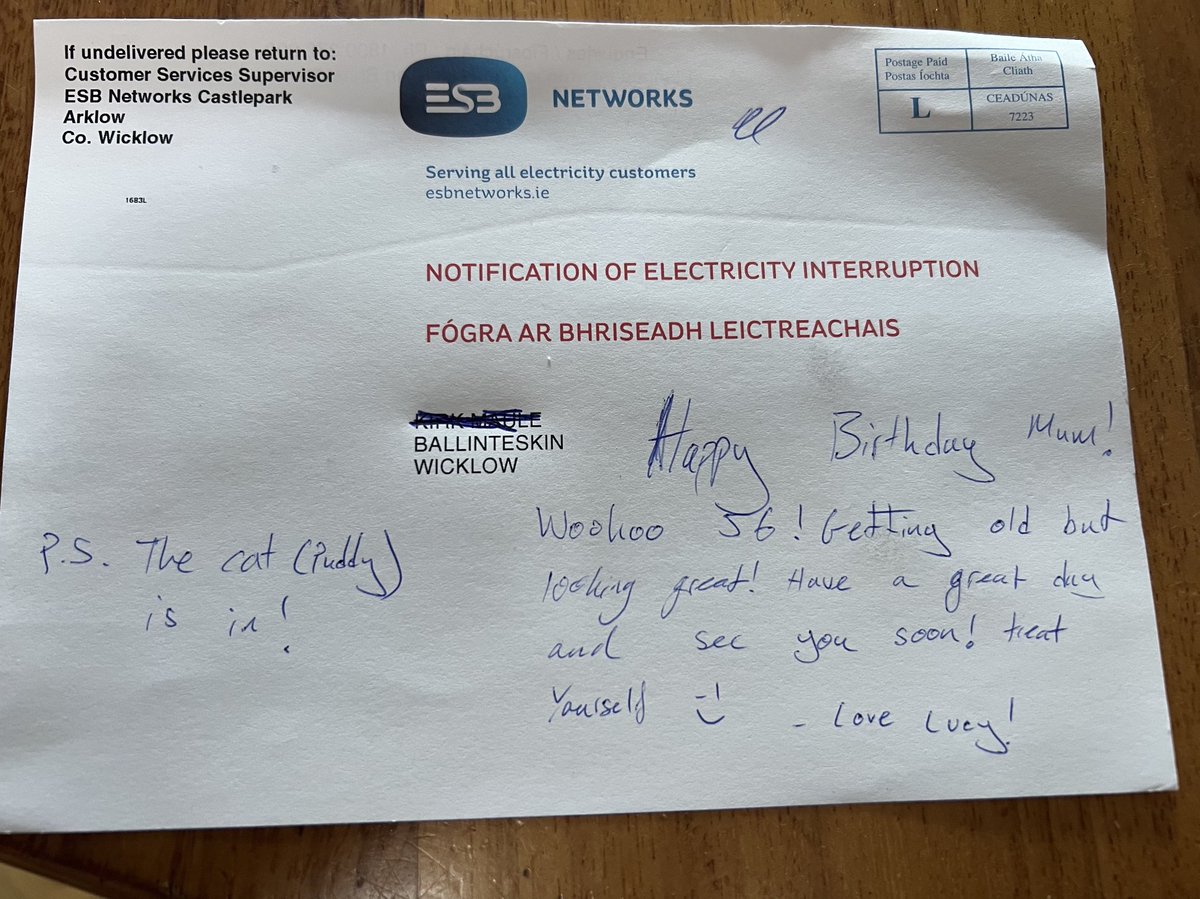 If undelivered please return to:
Customer Services Supervisor
ESB Networks Castlepark
Arklow
Co. Wicklow
1683L
ESB NETWORKS
Serving all electricity customers
esbnetworks.ie
Postage Paid
Postas Íoctha
Baile Átha
Cliath
L
CEADÚNAS
7223
NOTIFICATION OF ELECTRICITY INTERRUPTION
FÓGRA AR BHRISEADH LEICTREACHAIS
BALLINTESKIN
WICKLOW
Happy Birthday Mum!
Woohoo 56! Getting old but
looking great! Have a great day
and see you soon! treat
Yourself :)
- Love Lucy!
P.S. The cat (Puddy)
is in!